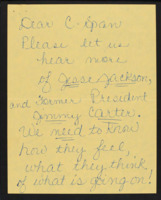 Dear C-Span
Please let us
hear more
of Jesse Jackson,
and Former President
Jimmy Carter.
We need to know
how they feel,
what they think
of what is going on!